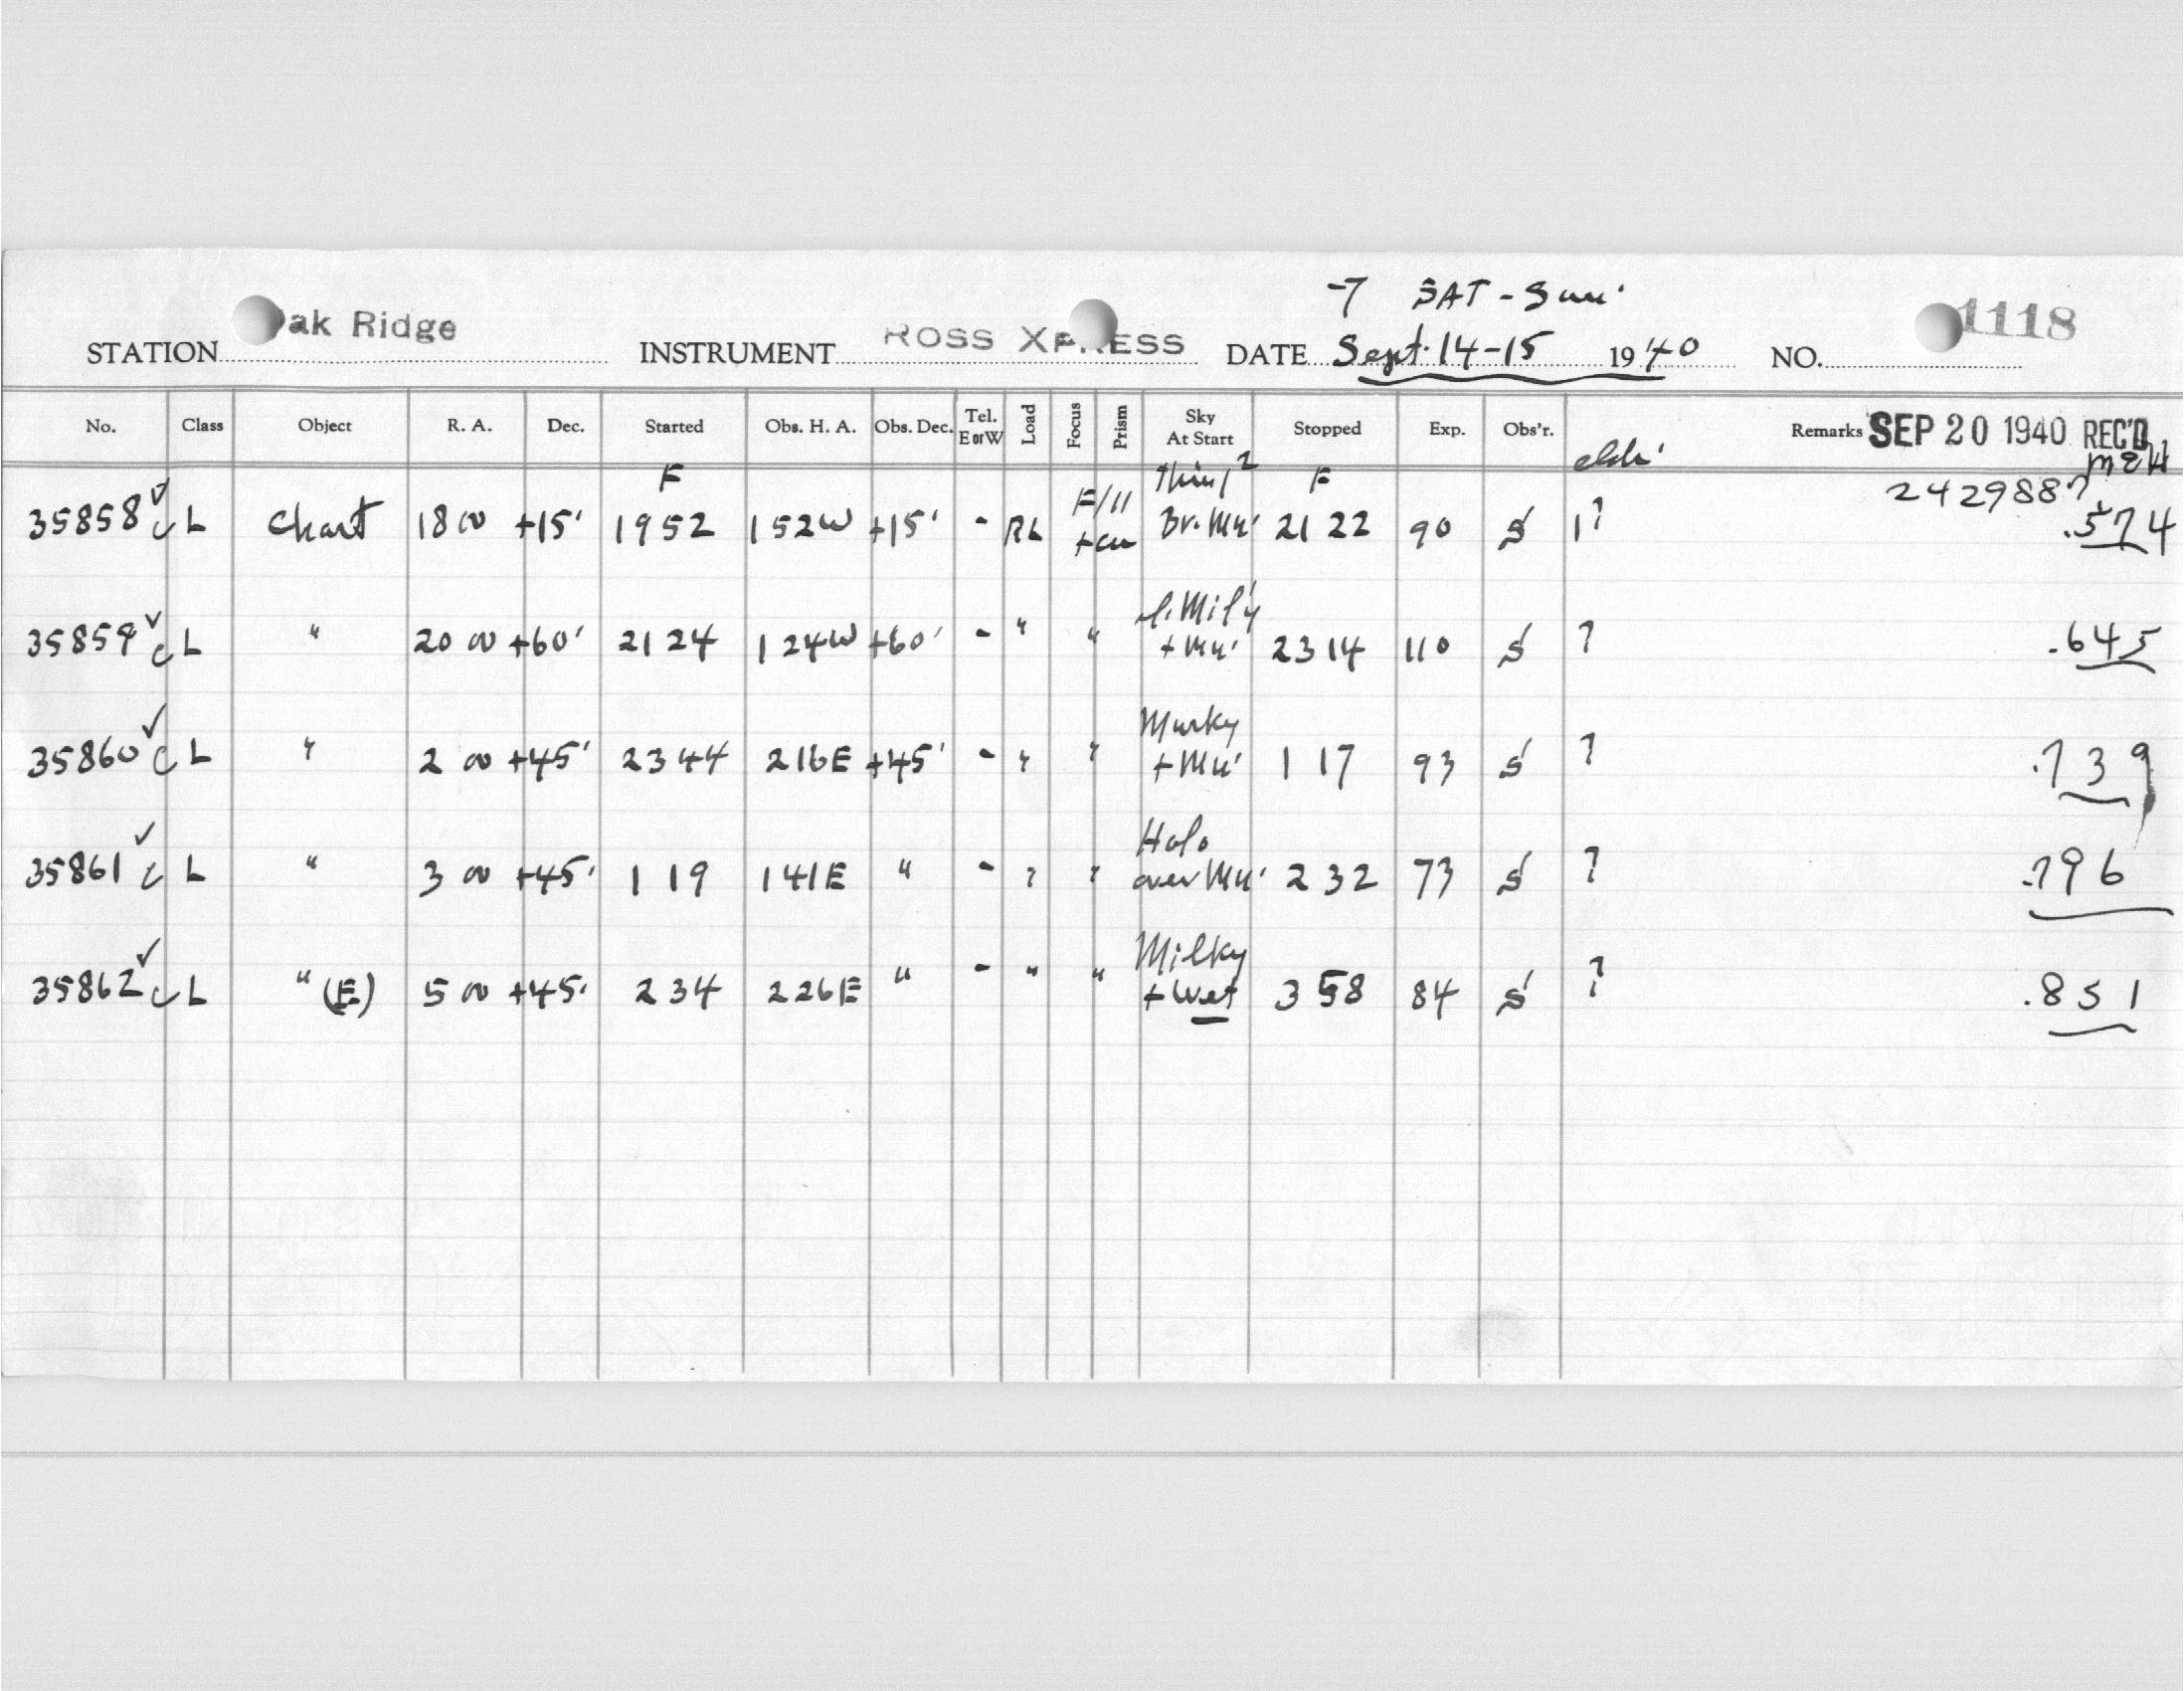 -7 SAT - Sun'
STATION Oak Ridge INSTRUMENT ROSS XPRESS DATE Sept. 14-15 1940 NO. 1118
No. Class Object R. A. Dec. Started Obs. H. A. Obs. Dec. Tel. E or W Load Focus Prism Sky At Start Stopped Exp. Obs'r. Remarks SEP 20 1940 REC'D
MEH
F Thin/2 F 2429887
35858 ✓ c L Chart 18 00 +15' 19 52 1 52W +15' - RL F/11 + cu Br. Mn' 21 22 90 S 1? .574
35859 ✓ c L " 20 00 +60' 21 24 1 24W +60' - " " + Mn' 23 14 110 S ? .645
35860 ✓ c L " 2 00 +45' 23 44 2 16E +45' - " " Murky + Mn' 1 17 93 S ? .739
35861 ✓ c L " 3 00 +45' 1 19 1 41E " - " " Halo over Mn' 2 32 73 S ? .796
35862 ✓ c L " (E) 5 00 +45' 2 34 2 26E " - " " Milky + Wet 3 58 84 S ? .851